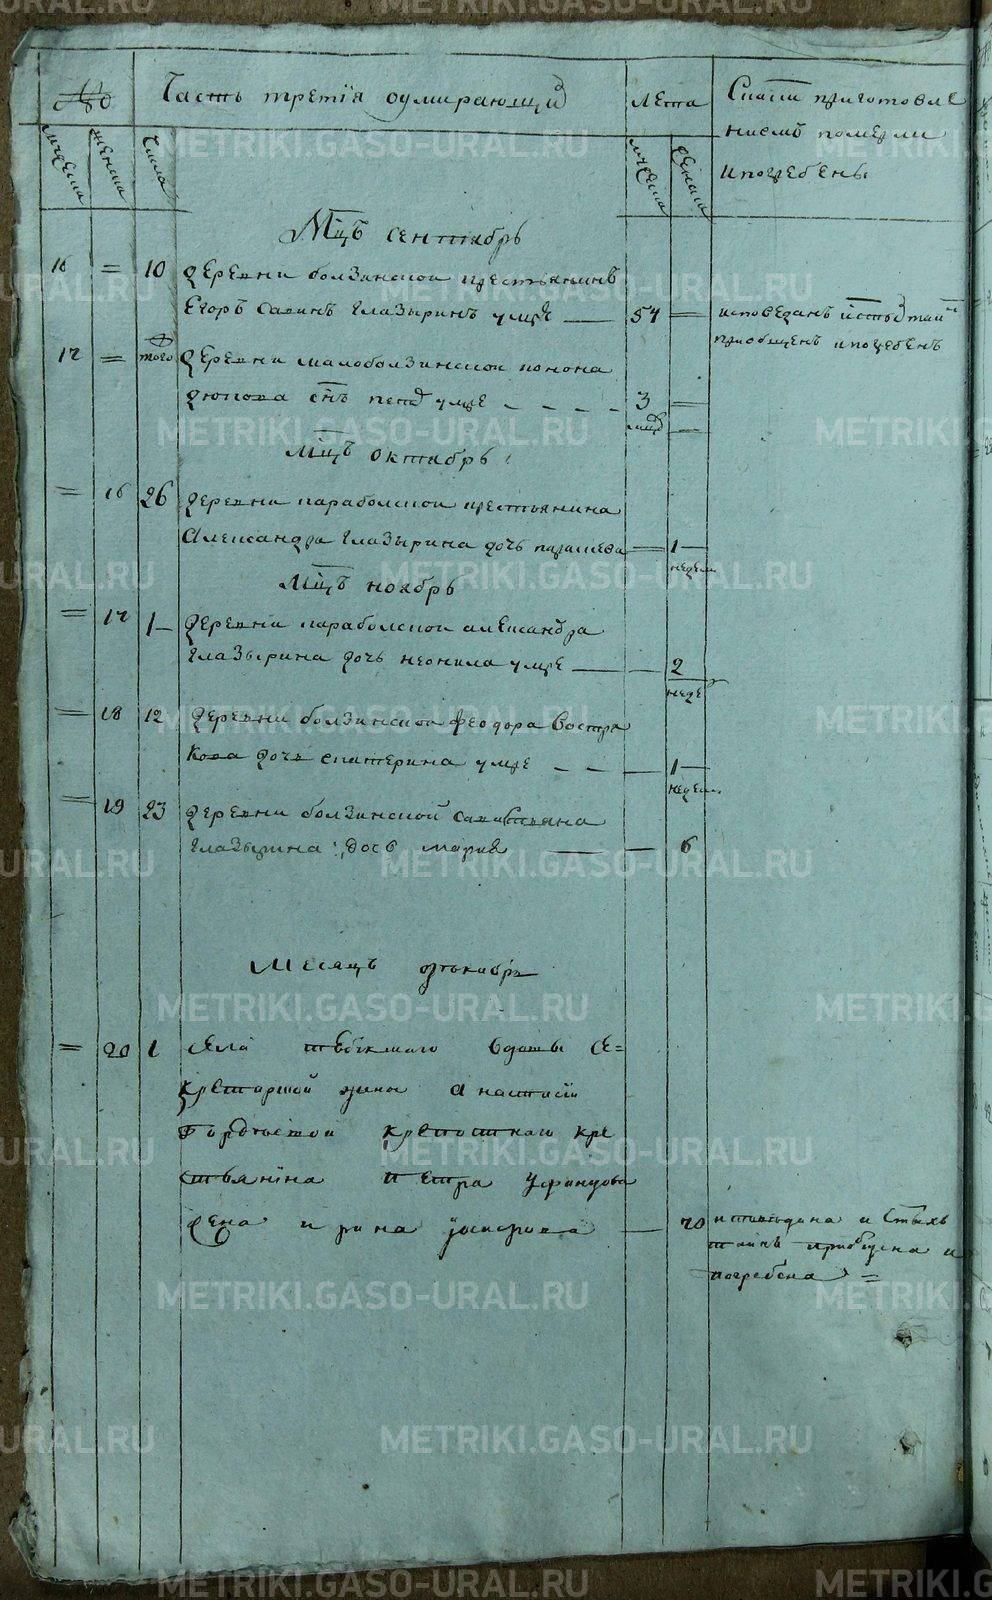 METRIKI.GASO-URAL.RU
№
Часть третїя оумирающих
Лета
Скаким приготовле
ниемъ померли
и погребены
мужеска
женска
числа
мужеска
женска
Мцъ сентябрь
16 = 10 деревни болзинской крестьянинъ
Егоръ Савинъ Глазыринъ умре — 57 = исповеданъ и стых таин
приобщенъ и погребенъ
17 = того деревни малоболзинской
снъ умре - - - - 3 =
мцд —
Мцъ октябрь
= 16 26 деревни параболской крестьянина
Александра Глазырина дочь параскева — 1 —
недели
Мцъ ноябрь
= 17 1 — деревни параболской александра
глазырина дочь неонила умре — — 2
неде
= 18 12 деревни болзинской феодора Востря
кова дочь екатерина умре - - — 1 —
недели
= 19 23 деревни болзинской савастьяна
глазырина дочь мария — — 6
Месяцъ декабрь
= 20 1 села вдовы се=
кретаршой жины Анастасїи
крепостнаго кре
стьянїна Петра
жена ирина — 70 исповедана и Стыхъ
таинъ приобщена и
погребена =